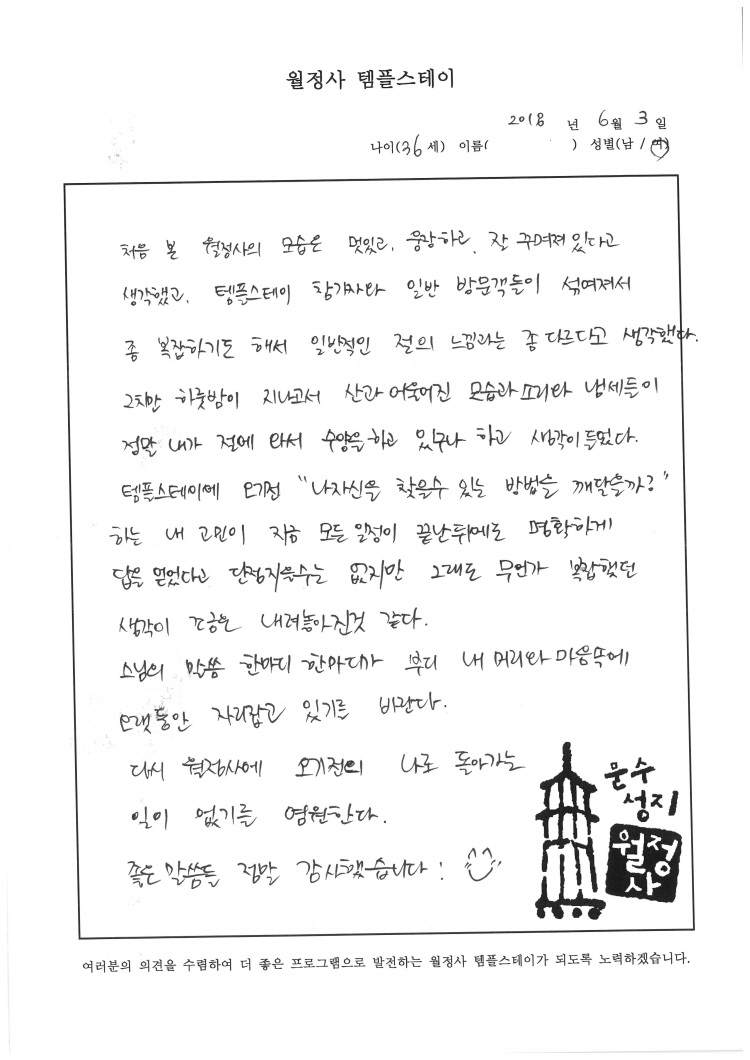 월정사 템플스테이
2018 년 6월 3일
나이(36세) 이름( ) 성별(남 / 여)
처음 본 월정사의 모습은 멋있고, 웅장하고, 잘 꾸며져 있다고
생각했고, 템플스테이 참가자와 일반 방문객들이 섞여져서
좀 복잡하기도 해서 일반적인 절의 느낌과는 좀 다르다고 생각했다.
그치만 하룻밤이 지나고서 산과 어욱어진 모습과 소리와 냄세들이
정말 내가 절에 와서 수양을 하고 있구나 하고 생각이 들었다.
템플스테이에 오기전 "나자신을 찾을수 있는 방법을 깨달을까?"
하는 내 고민이 지금 모든 일정이 끝난뒤에도 명확하게
답을 얻었다고 단정지을수는 없지만 그래도 무언가 복잡했던
생각이 조금은 내려놓아진것 같다.
스님의 말씀 한마디 한마디가 부디 내 머리와 마음속에
오랫동안 자리잡고 있기를 바란다.
다시 월정사에 오기전의 나로 돌아가는
일이 없기를 염원한다.
좋은 말씀들 정말 감사했습니다!
문수
성지
월정
사
여러분의 의견을 수렴하여 더 좋은 프로그램으로 발전하는 월정사 템플스테이가 되도록 노력하겠습니다.